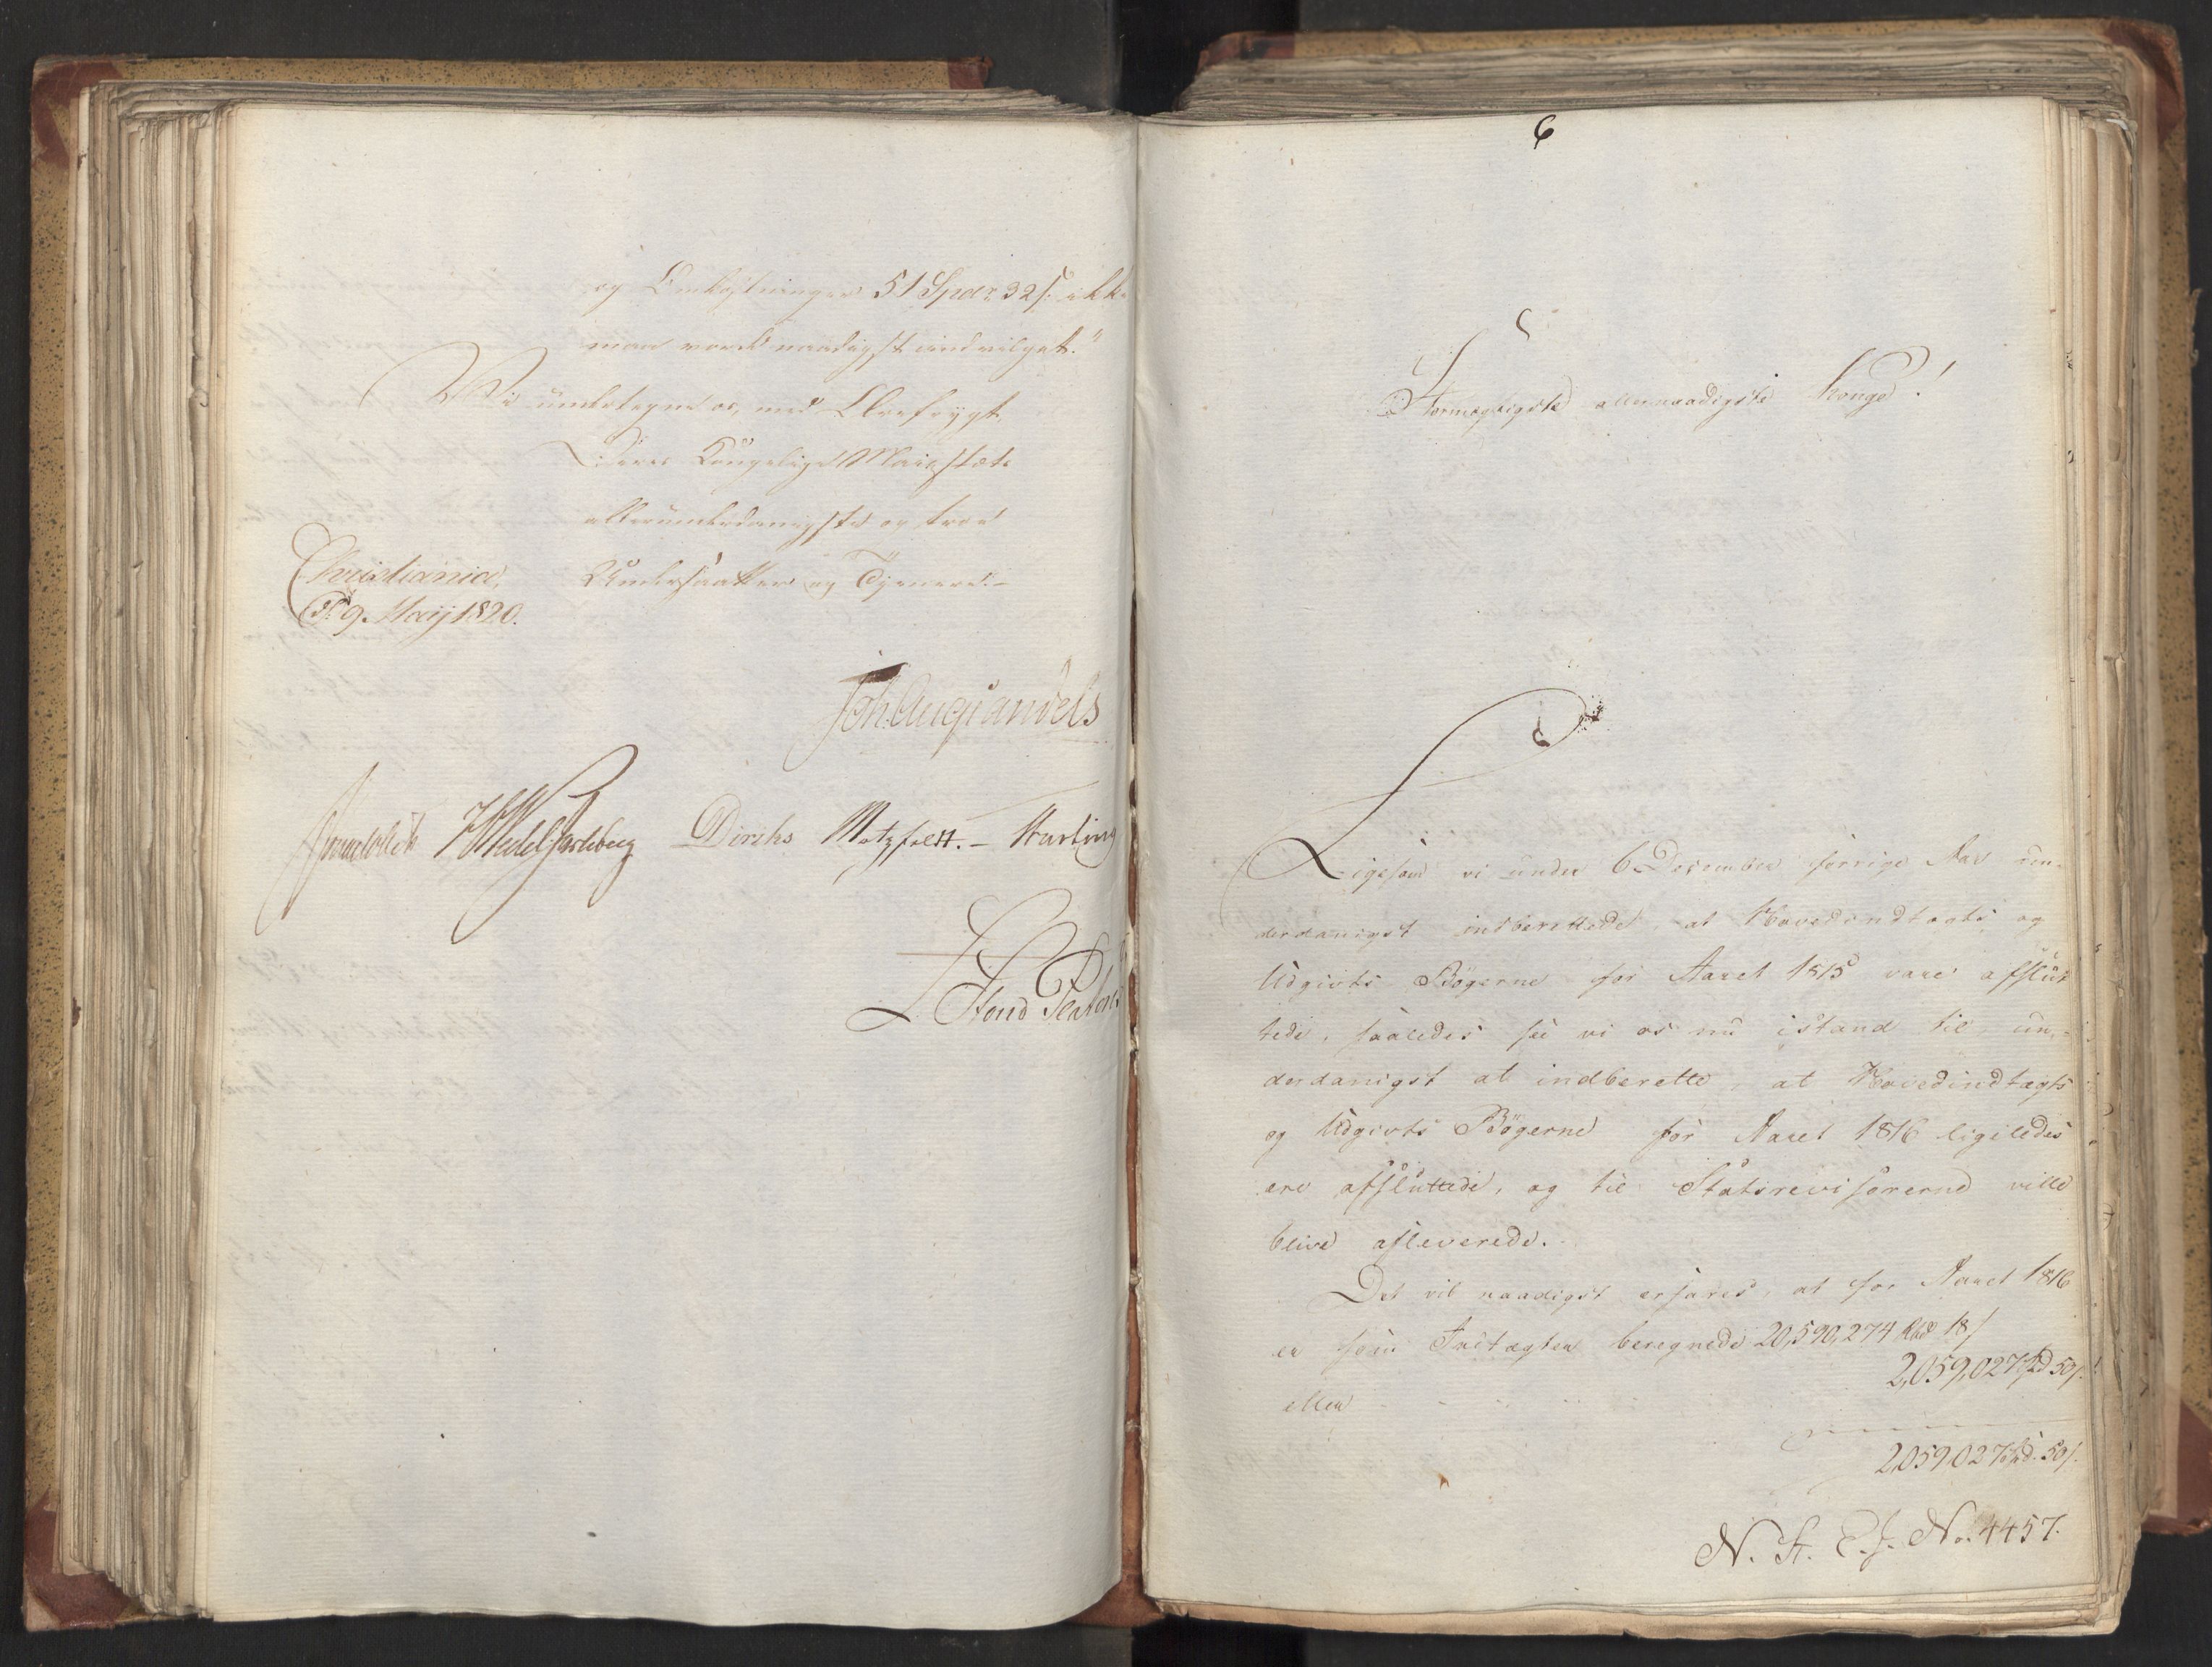 og Omkostninger 51 Spdr 32 s. ikke
maa vorde naadigst indvilget."
Vi undertegne os, med Ærefrygt,
Deres Kongelige Majestæts
allerunderdanigste og troe
Undersaatter og Tjenere.-
Christiania,
D. 9. Maij 1820.
Joh. Aug. Sandels
Sommerhielm HWedelJarlsberg Diriks Motzfeldt. - Krag
Fasting
L. Stoud Platou
6
Stormægtigste allernaadigste Konge!
Ligesom vi under 6 December forrige Aar un-
derdanigst indberettede, at Hovedindtægts og
Udgivts Bøgerne for Aaret 1815 vare afslut
tede, saaledes see vi os nu istand til un-
derdanigst at indberette, at Hovedindtægts
og Udgivts Bøgerne for Aaret 1816 ligeledes
ere afsluttede, og til Statsrevisorerne ville
blive afleverede.
Det vil naadigst erfares, at for Aaret 1816
er som Indtægter beregnede 20,590,274 Rbd 18 s
eller - - - 2,059,027 Spd 50 s.
2,059,027 Spd. 50 s.
N. St. E. J. No. 4457.